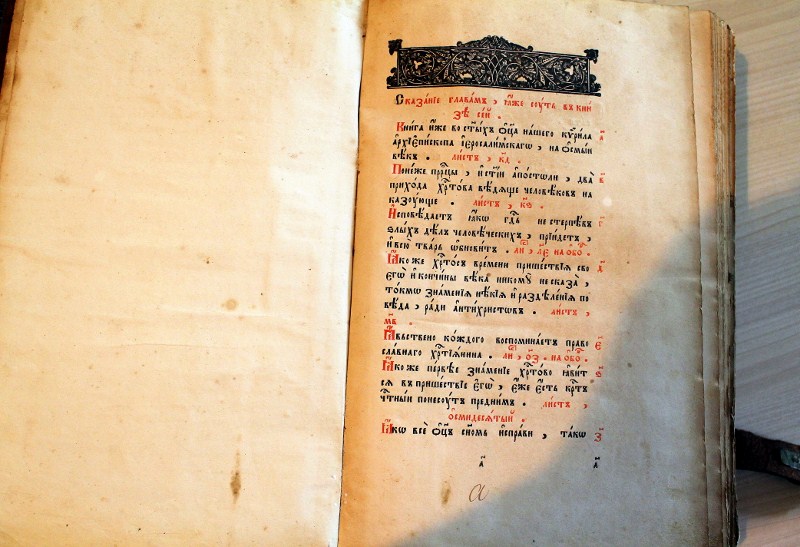 Сказа́нїе глава́мъ , ꙗ҆̀же сѹть въ кни́
зѣ се́й .
Кни́га и҆́же во ст҃ы́хъ ѻ҆ц҃а̀ на́шего кѷри́лла а҃
а҆рхїепи́скопа і҆еросали́мскагѡ , на ѻ҆смы́й
вѣ́къ . ли́стъ , к҃д .
Поне́же прⷪ҇ро́цы , и҆ ст҃і́и а҆по́столи , два̀ в҃
прихо́да хрⷭ҇то́ва вѣ́дѧще человѣ́кѡвъ на
казѹ́юще . ли́стъ , к҃ѳ .
И҆сповѣ́даетъ ꙗ҆́кѡ гдⷭ҇ь не стерпѣ́въ г҃
ѕлы́хъ дѣ́лъ человѣ́ческихъ , прїи́детъ ,
и҆ всю̀ тва́рь ѡ҆бнови́тъ . ли́ , л҃е на ѻ҆бо́ .
Ꙗ҆́коже хрⷭ҇то́съ вре́мени прише́ствїѧ сво д҃
егѡ̀ и҆ кончи́ны вѣ́ка никомѹ̀ не сказа̀ ,
то́кмѡ зна́менїѧ нѣ́кїѧ и҆ раздѣле́нїѧ по
вѣ́да , ра́ди а҆нтихри́стовъ . ли́стъ ,
м҃в .
Ꙗ҆́вьствено ко́ждого воспомина́етъ право е҃
сла́внаго хрⷭ҇тїѧ́нина . ли́ , ѻ҃з . на ѻ҆бо́ .
Ꙗ҆́коже пе́рвѣе зна́менїе хрⷭ҇то́во ꙗ҆ви́т ѕ҃
сѧ въ прише́ствїе є҆гѡ̀ , є҆́же є҆́сть крⷭ҇тъ
чⷭ҇тны́и понесѹ́тъ пред ни́мъ . ли́стъ ,
ѻ҆смидесѧ́тый .
Ꙗ҆́кѡ всѐ ѻ҆ц҃ъ сн҃омъ и҆спра́ви , та́кѡ з҃
а҃ а҃
а